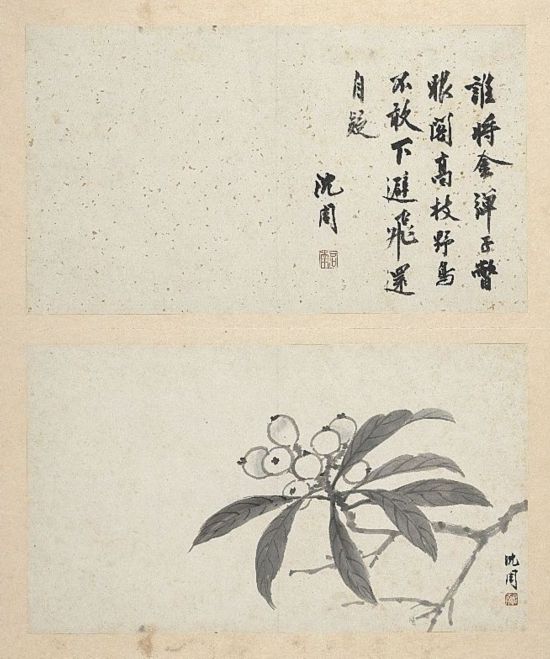 誰將金彈子瞥
眼闍高枝野鳥
不敢下避飛還
自疑
沈周
沈周